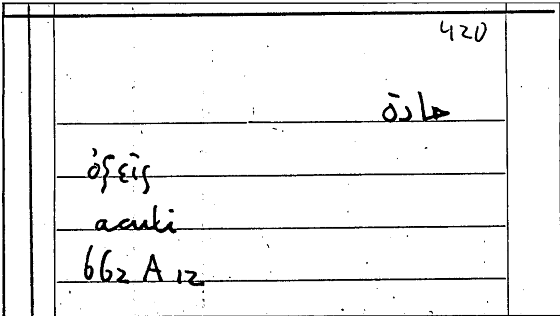 420
حادة
ὀξεῖς
acuti
662 A 12